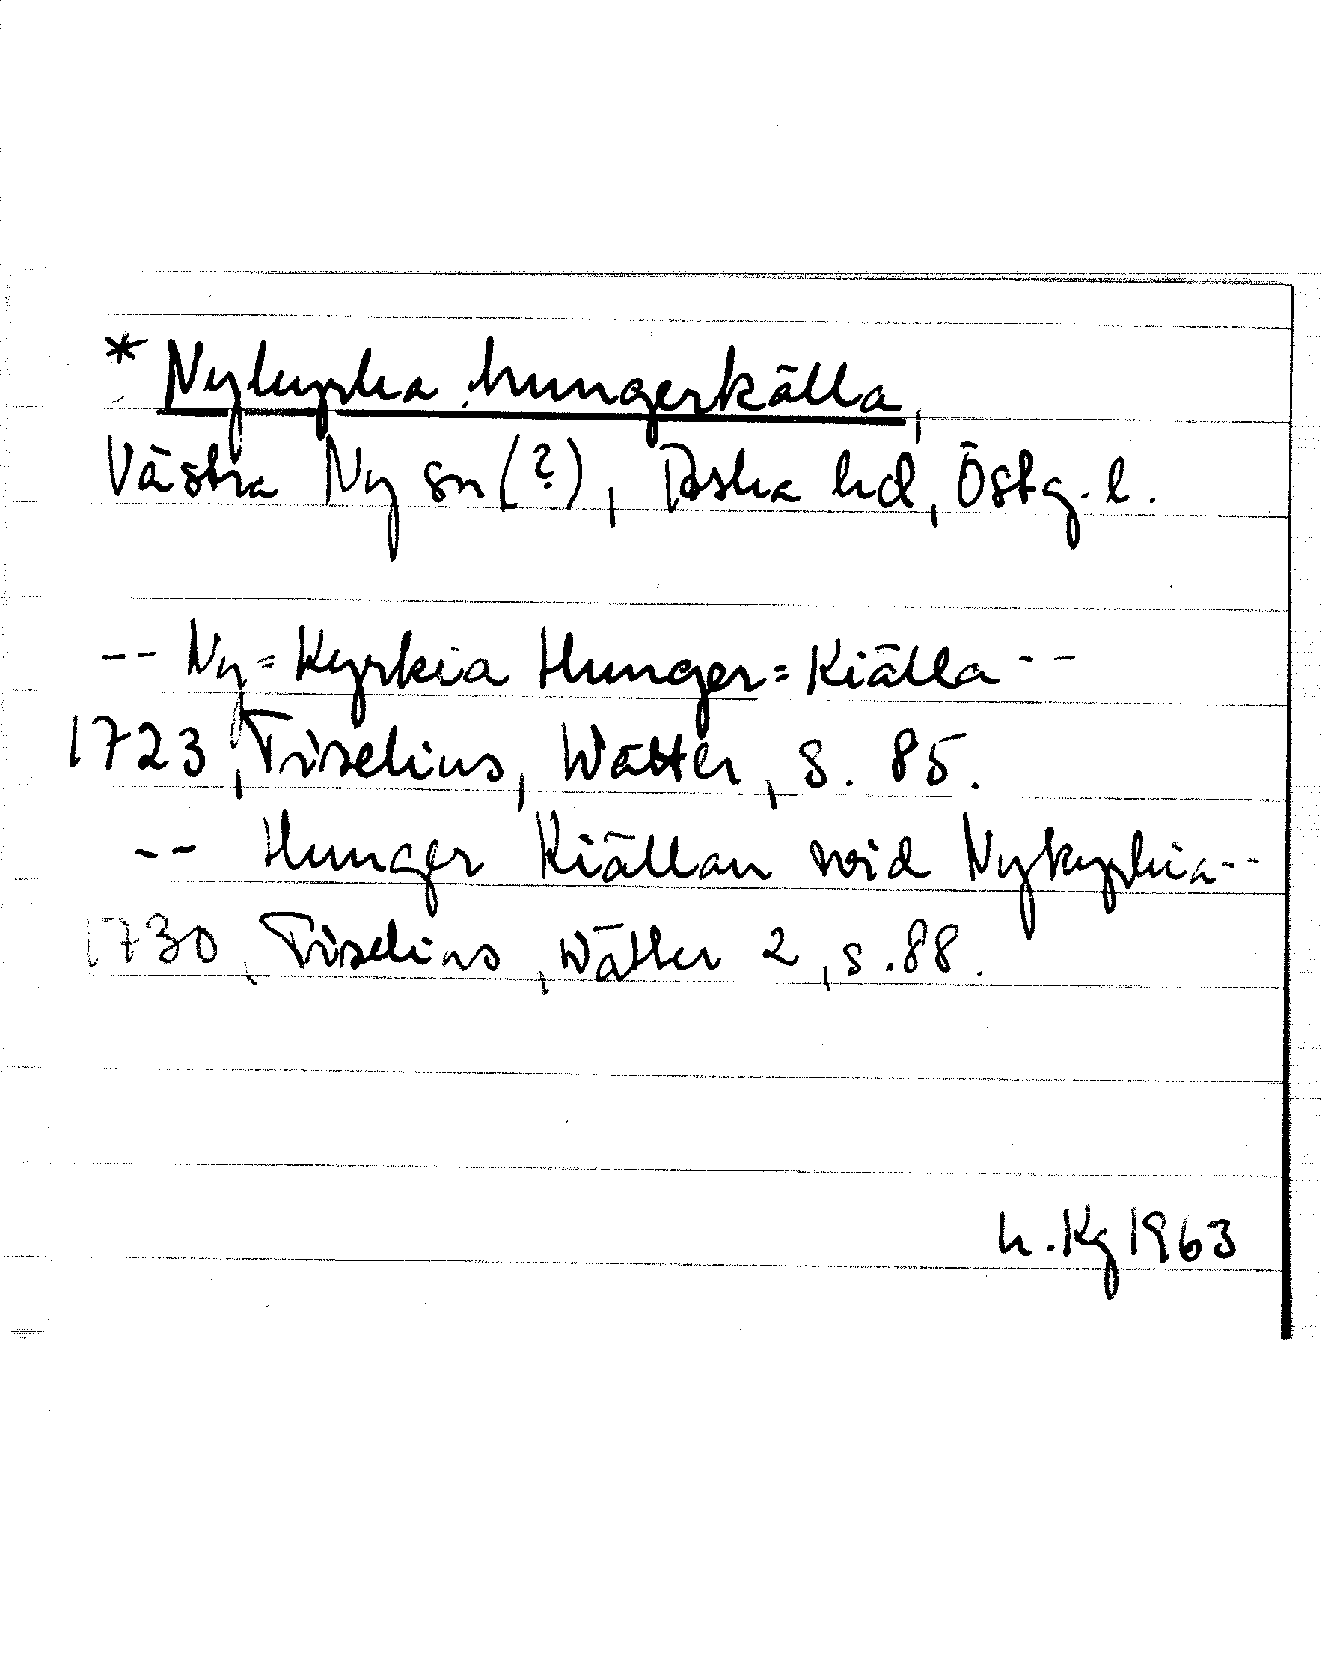 * Nykyrka hungerkälla,
Västra Ny sn (?), Aska hd, Östg. l.
-- Ny=Kyrkia Hunger=Kiälla --
1723, Tiselius, Wätter, s. 85.
-- Hunger Kiällan wid Nykyrkia--
1730, Tiselius, Wätter 2, s. 88.
h. Kg 1963